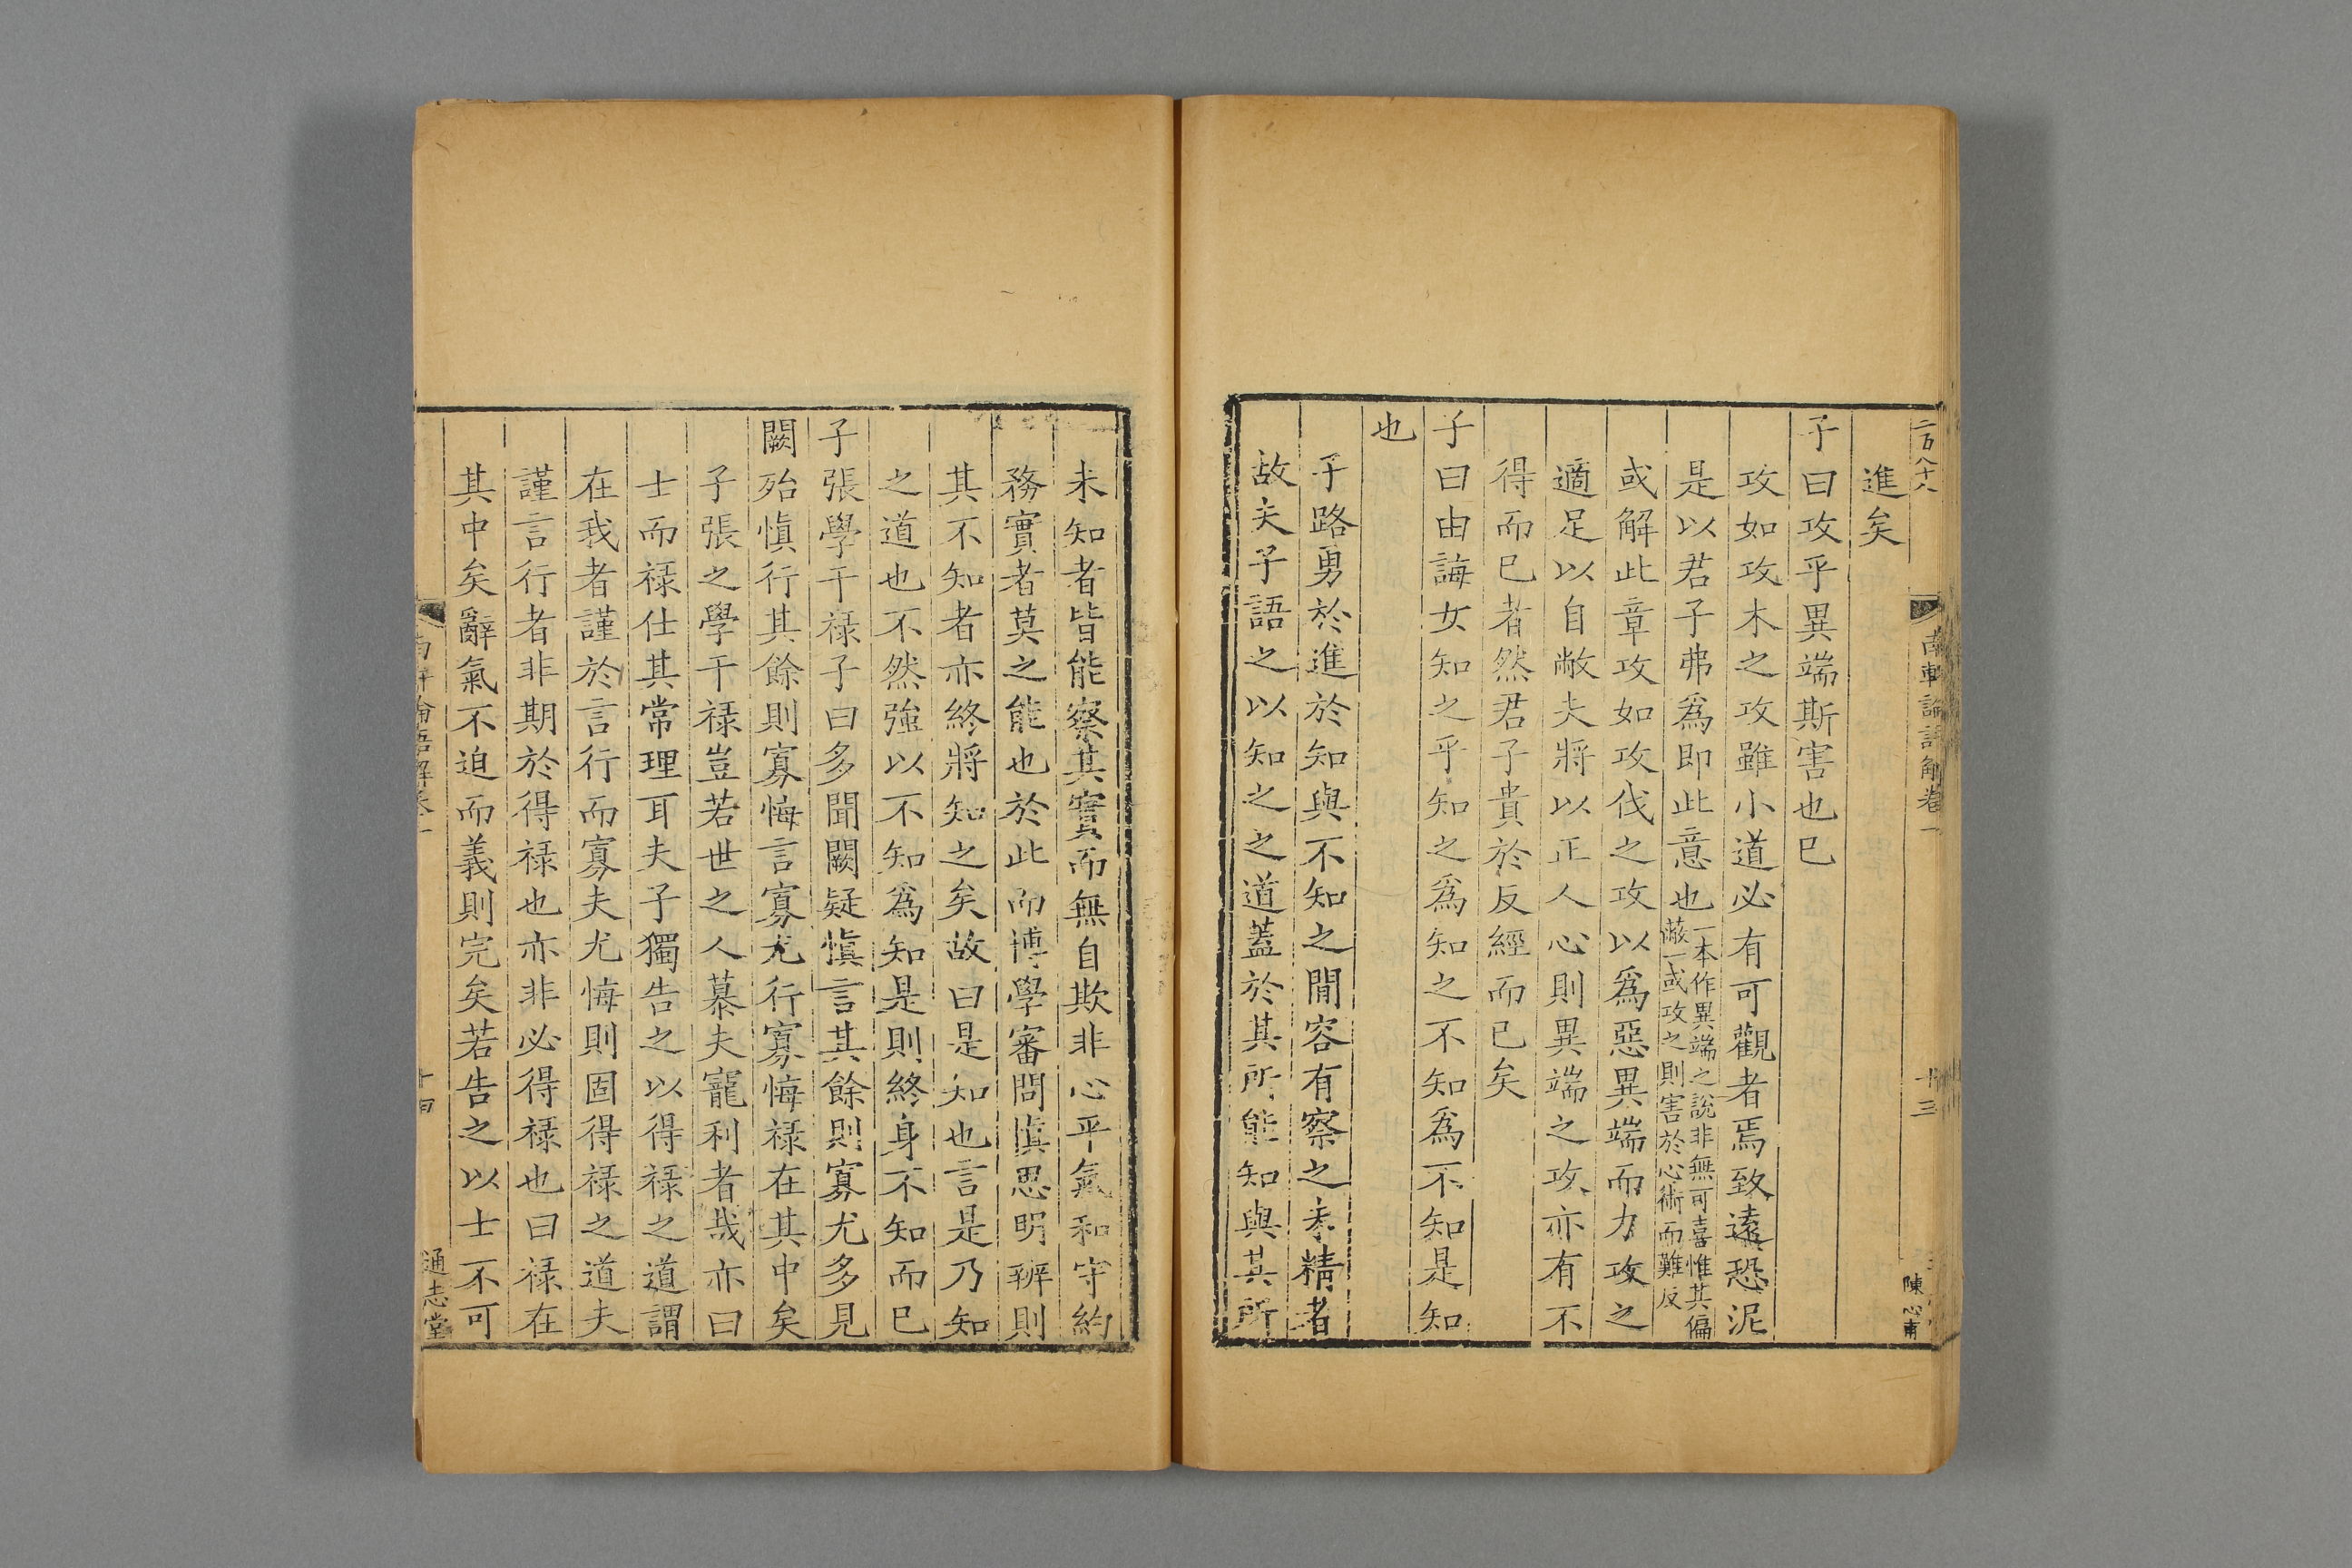 二百八十八
南軒論語解卷一
十三
陳心甫
進矣
子曰攻乎異端斯害也已
攻如攻木之攻雖小道必有可觀者焉致遠恐泥
是以君子弗爲即此意也一本作異端之說非無可喜惟其偏
蔽一或攻之則害於心術而難反
或解此章攻如攻伐之攻以爲惡異端而力攻之
適足以自敝夫將以正人心則異端之攻亦有不
得而已者然君子貴於反經而已矣
子曰由誨女知之乎知之爲知之不知爲不知是知
也
子路勇於進於知與不知之閒容有察之未精者
故夫子語之以知之之道蓋於其所能知與其所
未知者皆能察其實而無自欺非心平氣和守約
務實者莫之能也於此而博學審問慎思明辨則
其不知者亦終將知之矣故曰是知也言是乃知
之道也不然強以不知爲知是則終身不知而已
子張學干祿子曰多聞闕疑慎言其餘則寡尤多見
闕殆慎行其餘則寡悔言寡尤行寡悔祿在其中矣
子張之學干祿豈若世之人慕夫寵利者哉亦曰
士而祿仕其常理耳夫子獨告之以得祿之道謂
在我者謹於言行而寡夫尤悔則固得祿之道夫
謹言行者非期於得祿也亦非必得祿也曰祿在
其中矣辭氣不迫而義則完矣若告之以士不可
論語解卷一
十四
通志堂